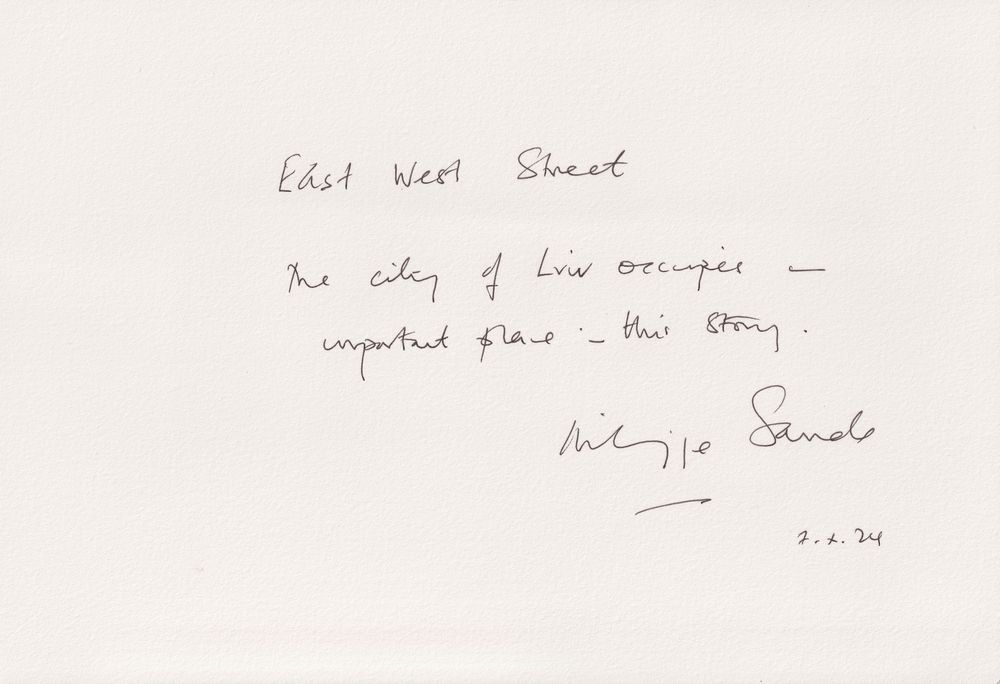 East West Street
The city of Lviv occupies an
important place in this story.
Philippe Sands
7.x.24